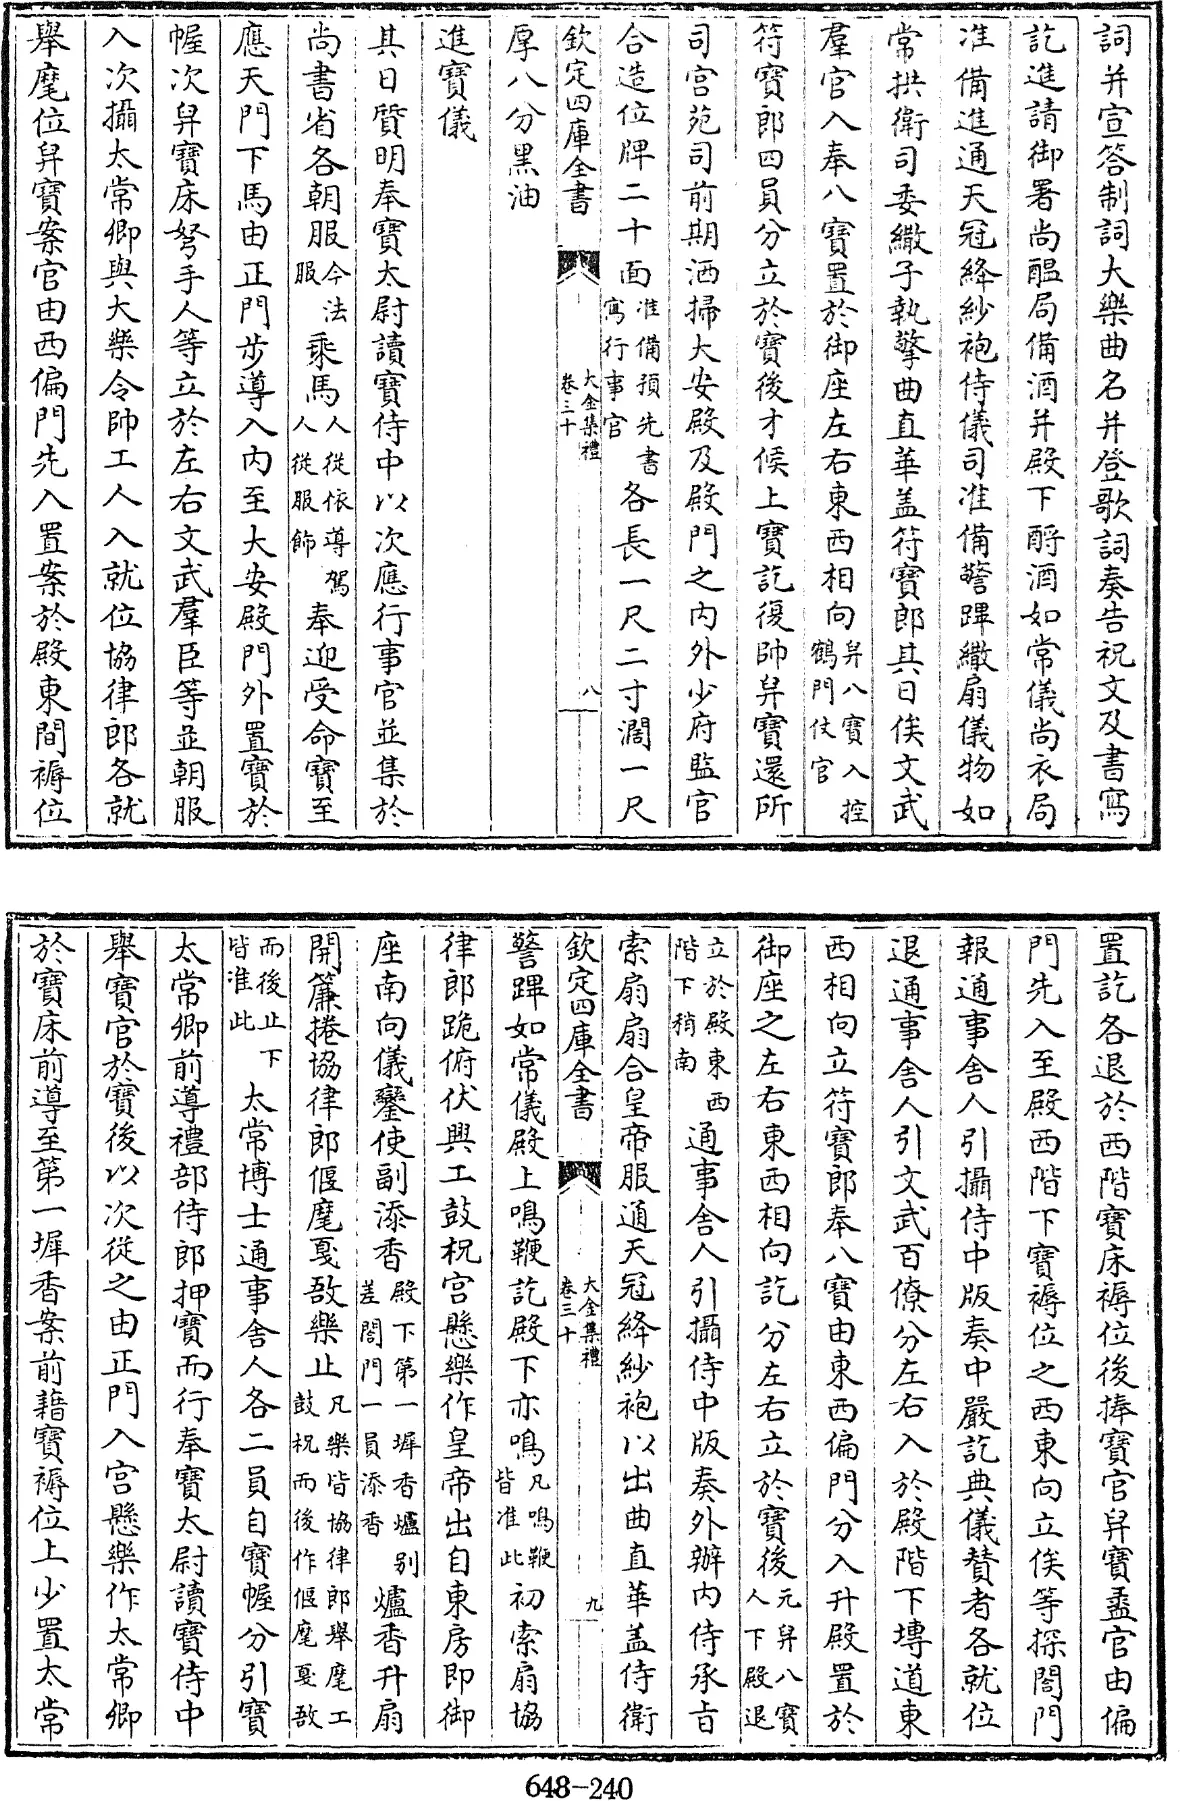 詞并宣答制詞大樂曲名并登歌詞奏告祝文及書寫
訖進請御署尚醞局備酒并殿下酹酒如常儀尚衣局
准備進通天冠絳紗袍侍儀司准備警蹕繖扇儀物如
常拱衛司委繖子執擎曲直華盖符寶郎其日俟文武
羣官入奉八寶置於御座左右東西相向舁八寶入控鶴門仗官
符寶郎四員分立於寶後才候上寶訖復帥舁寶還所
司宫苑司前期洒掃大安殿及殿門之内外少府監官
合造位牌二十面准備預先書寫行事官各長一尺二寸濶一尺
欽定四庫全書 大金集禮卷三十 八
厚八分黑油
進寶儀
其日質明奉寶太尉讀寶侍中以次應行事官並集於
尚書省各朝服今法服乘馬人從依導駕人從服飾奉迎受命寶至
應天門下馬由正門步導入内至大安殿門外置寶於
幄次舁寶床弩手人等立於左右文武羣臣等並朝服
入次攝太常卿與大樂令帥工人入就位協律郎各就
舉麾位舁寶案官由西偏門先入置案於殿東間褥位
置訖各退於西階寶床褥位後捧寶官舁寶盝官由偏
門先入至殿西階下寶褥位之西東向立俟等探閤門
報通事舍人引攝侍中版奏中嚴訖典儀賛者各就位
退通事舍人引文武百僚分左右入於殿階下塼道東
西相向立符寶郎奉八寶由東西偏門分入升殿置於
御座之左右東西相向訖分左右立於寶後元舁八寶人下殿退
立於殿東西階下稍南通事舍人引攝侍中版奏外辦内侍承旨
索扇扇合皇帝服通天冠絳紗袍以出曲直華盖侍衛
欽定四庫全書 大金集禮卷三十 九
警蹕如常儀殿上鳴鞭訖殿下亦鳴凡鳴鞭皆准此初索扇協
律郎跪俯伏興工鼓柷宫懸樂作皇帝出自東房即御
座南向儀鑾使副添香殿下第一墀香爐别差閤門一員添香爐香升扇
開簾捲協律郎偃麾戛敔樂止凡樂皆協律郎舉麾工鼓柷而後作偃麾戛敔
而後止下皆准此太常博士通事舍人各二員自寶幄分引寶
太常卿前導禮部侍郎押寶而行奉寶太尉讀寶侍中
舉寶官於寶後以次從之由正門入宫懸樂作太常卿
於寶床前導至第一墀香案前藉寶褥位上少置太常
648-240